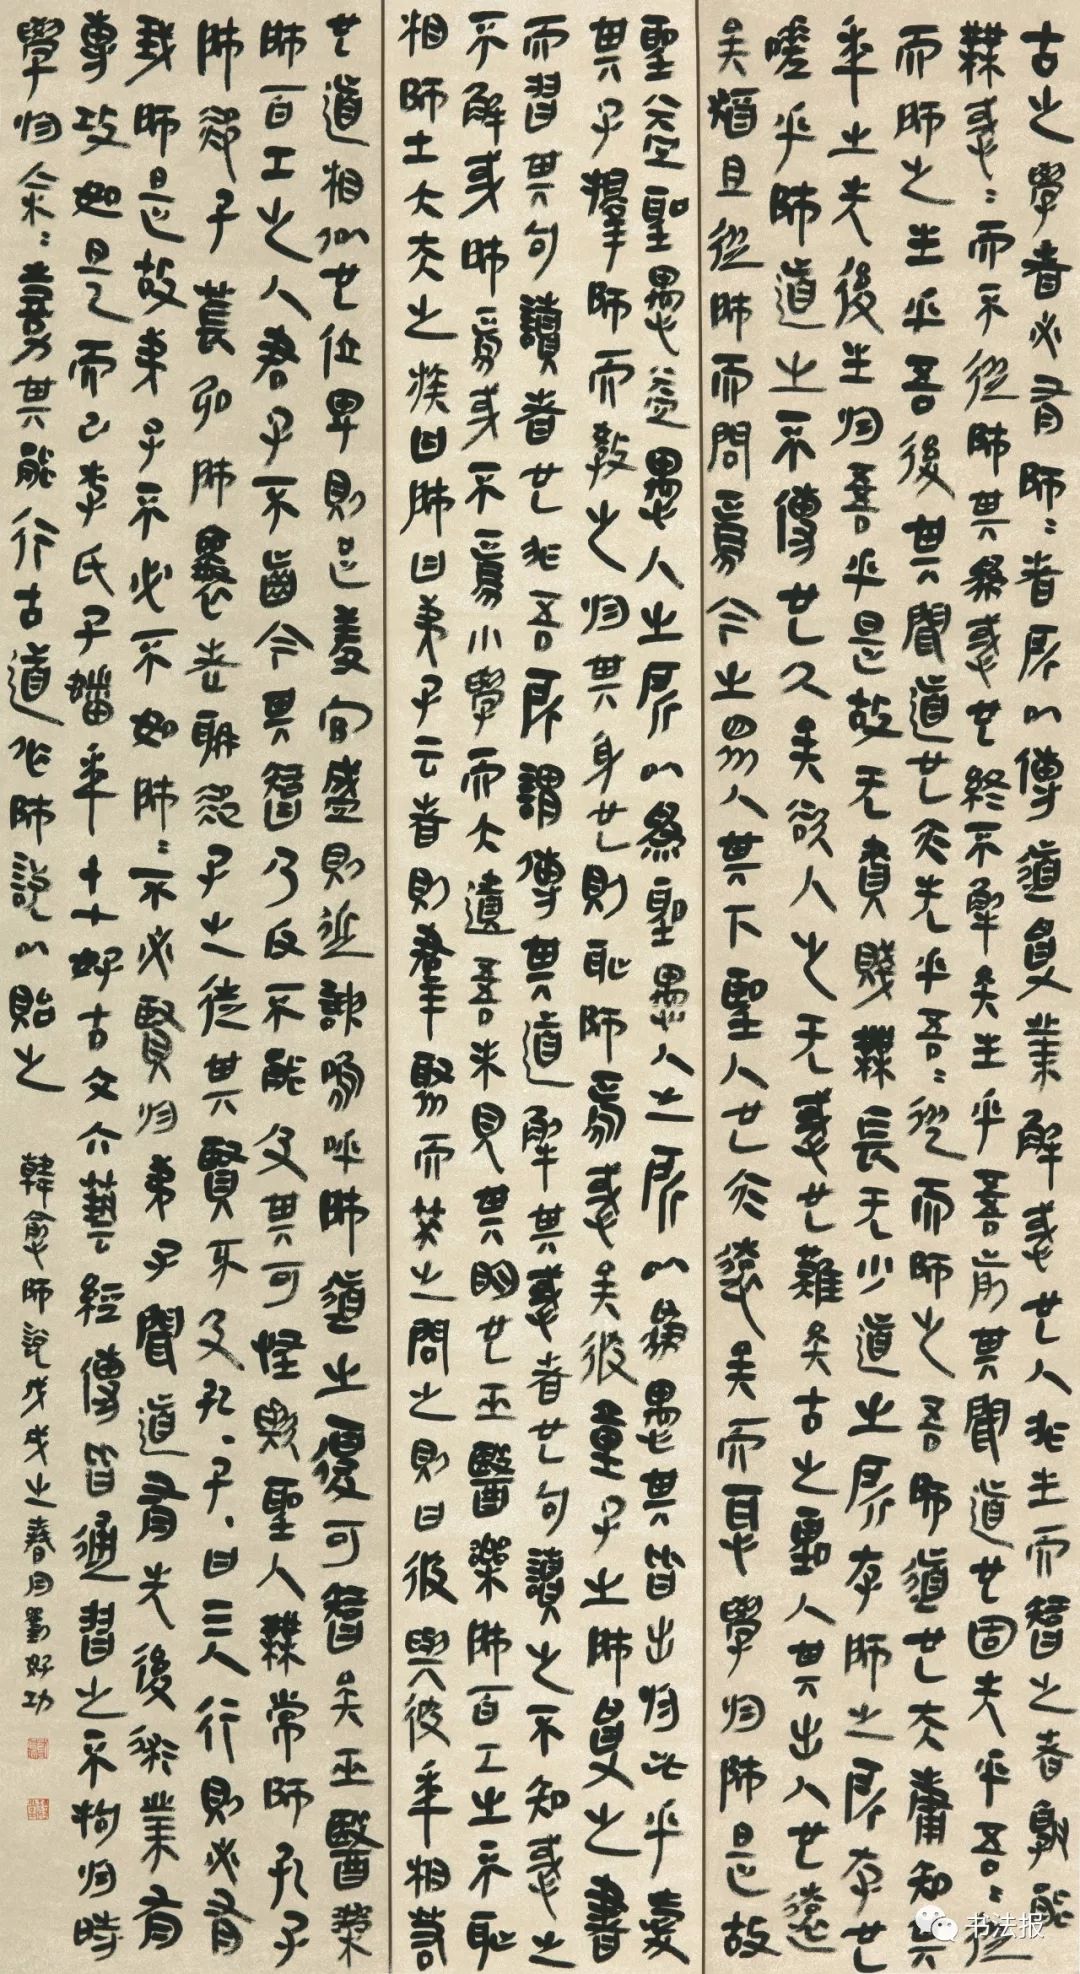 古之學者必有師=者所以傳道受業解惑也人非生而智之者孰能
無惑=而不從師其為惑也終不解矣生乎吾前其聞道也固先乎吾=從
而師之生乎吾後其聞道也亦先乎吾=從而師之吾師道也夫庸知其
年之先後生於吾乎是故无貴賤無長无少道之所存師之所存也
嗟乎師道之不傳也久矣欲人之无惑也難矣古之聖人其出人也遠
矣猶且從師而問焉今之眾人其下聖人也亦遠矣而恥學於師是故
聖益聖愚益愚人之所以為聖愚人之所以為愚其皆出於此乎愛
其子擇師而教之於其身也則恥師焉惑矣彼童子之師受之書
而習其句讀者也非吾所謂傳其道解其惑者也句讀之不知惑之
不解或師焉或不焉小學而大遺吾未見其明也巫醫樂師百工之不恥
相師士大夫之族曰師曰弟子云者則群聚而笑之問之則曰彼與彼年相若
也道相似也位卑則足羞官盛則近諛嗚呼師道之復可智矣巫醫樂
師百工之人君子不齒今其智乃反不能及其可怪歟聖人無常師孔子
師郯子萇弘師襄老聃郯子之徒其賢不及孔=子=曰三人行則必有
我師是故弟子不必不如師=不必賢於弟子聞道有先後術業有
專攻如是而已李氏子蟠年十七好古文六藝經傳皆通習之不拘於時
學於余=嘉其能行古道作師說以貽之 韓愈師說戊戌之春月劉好功
书法报